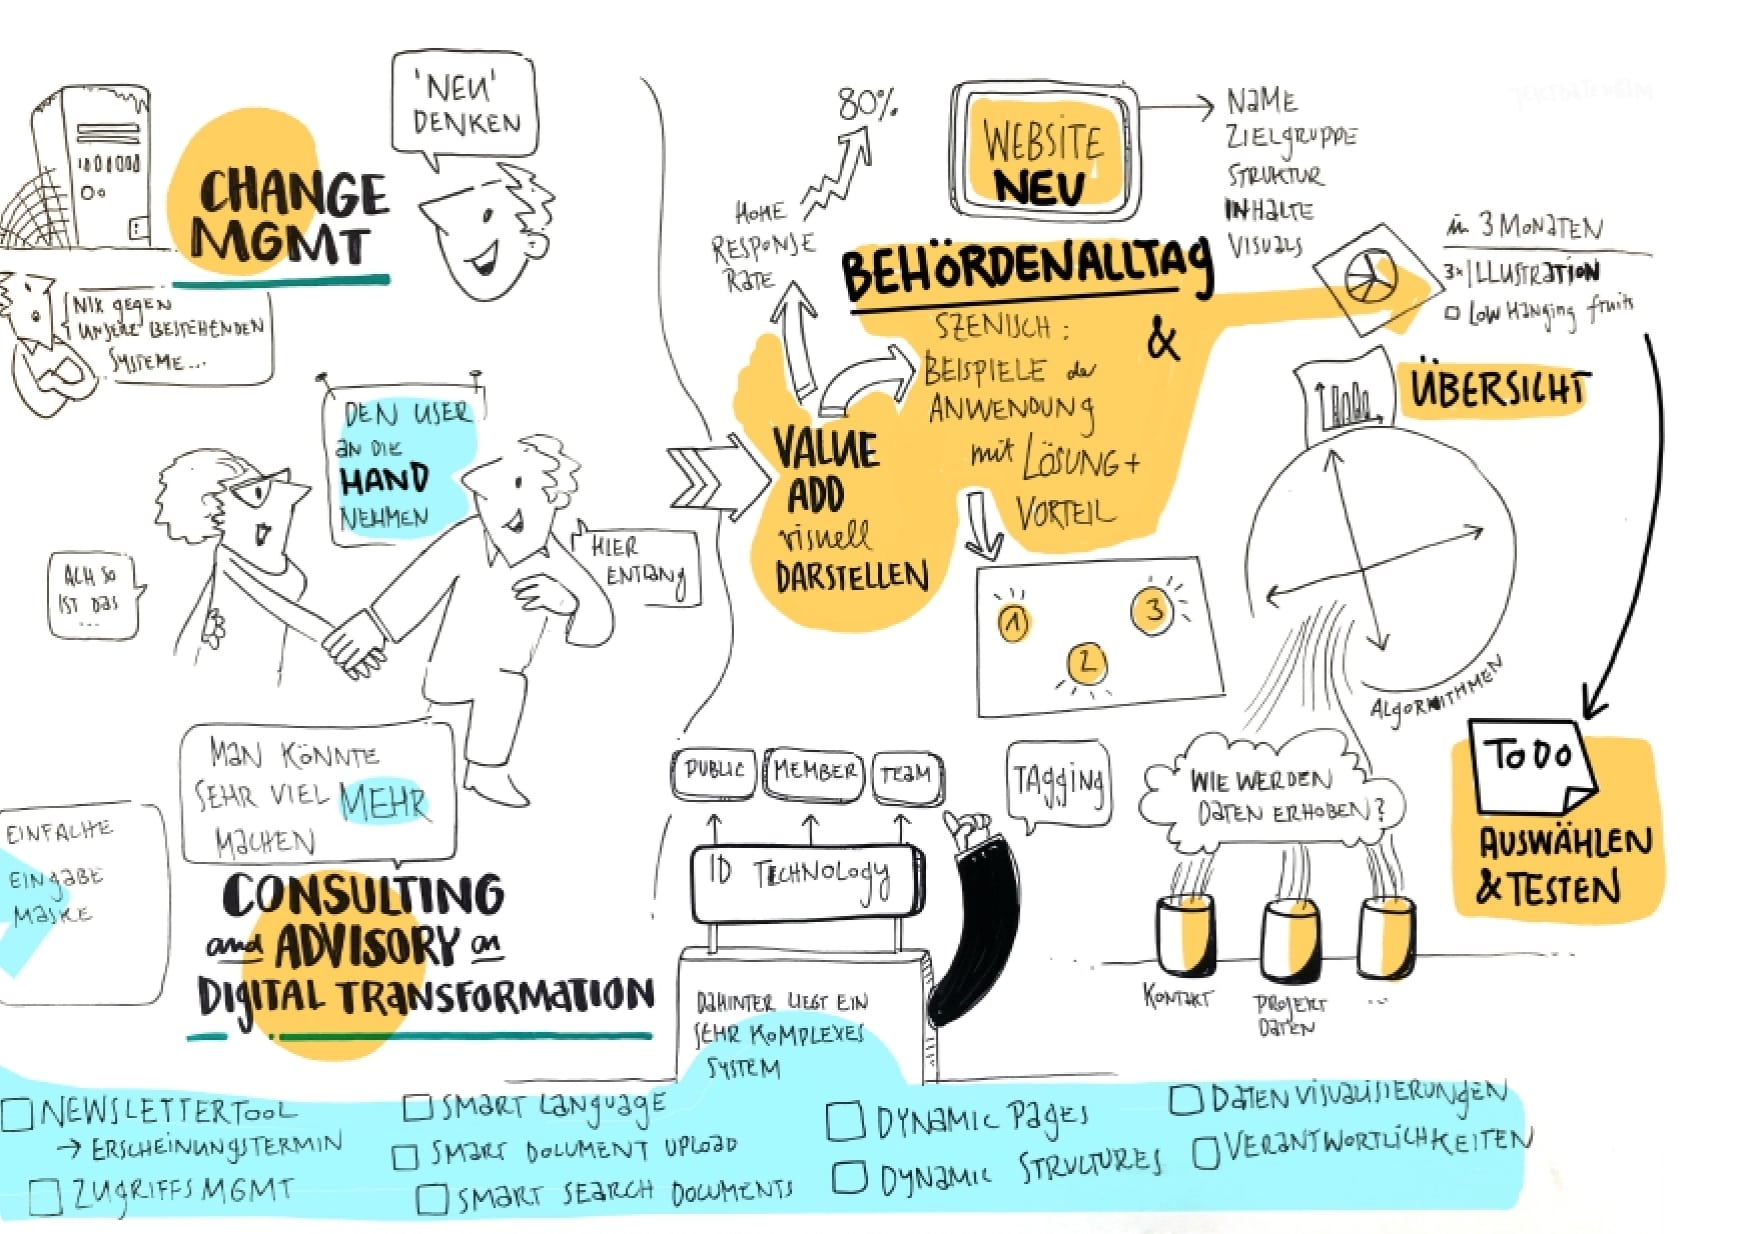 CHANGE
MGMT
'NEU'
DENKEN
NIX GEGEN
UNSERE BESTEHENDEN
SYSTEME...
DEN USER
AN DIE
HAND
NEHMEN
ACH SO
IST DAS
...
HIER
ENTLANG
MAN KÖNNTE
SEHR VIEL MEHR
MACHEN
EINFACHE
EINGABE
MASKE
CONSULTING
and ADVISORY on
DIGITAL TRANSFORMATION
80%
HOHE
RESPONSE
RATE
WEBSITE
NEU
NAME
ZIELGRUPPE
STRUKTUR
INHALTE
VISUALS
BEHÖRDENALLTAG
&
SZENISCH:
BEISPIELE der
ANWENDUNG
mit LÖSUNG +
VORTEIL
VALUE
ADD
visuell
DARSTELLEN
1
2
3
in 3 MONATEN
3x ILLUSTRATION
LOW HANGING fruits
ÜBERSICHT
ALGORITHMEN
TO DO
AUSWÄHLEN
& TESTEN
PUBLIC
MEMBER
TEAM
ID TECHNOLOGY
TAGGING
DAHINTER LIEGT EIN
SEHR KOMPLEXES
SYSTEM
WIE WERDEN
DATEN ERHOBEN?
KONTAKT
PROJEKT
DATEN
...
NEWSLETTERTOOL
→ ERSCHEINUNGSTERMIN
ZUGRIFFSMGMT
SMART LANGUAGE
SMART DOCUMENT UPLOAD
SMART SEARCH DOCUMENTS
DYNAMIC PAGES
DYNAMIC STRUCTURES
DATENVISUALISIERUNGEN
VERANTWORTLICHKEITEN